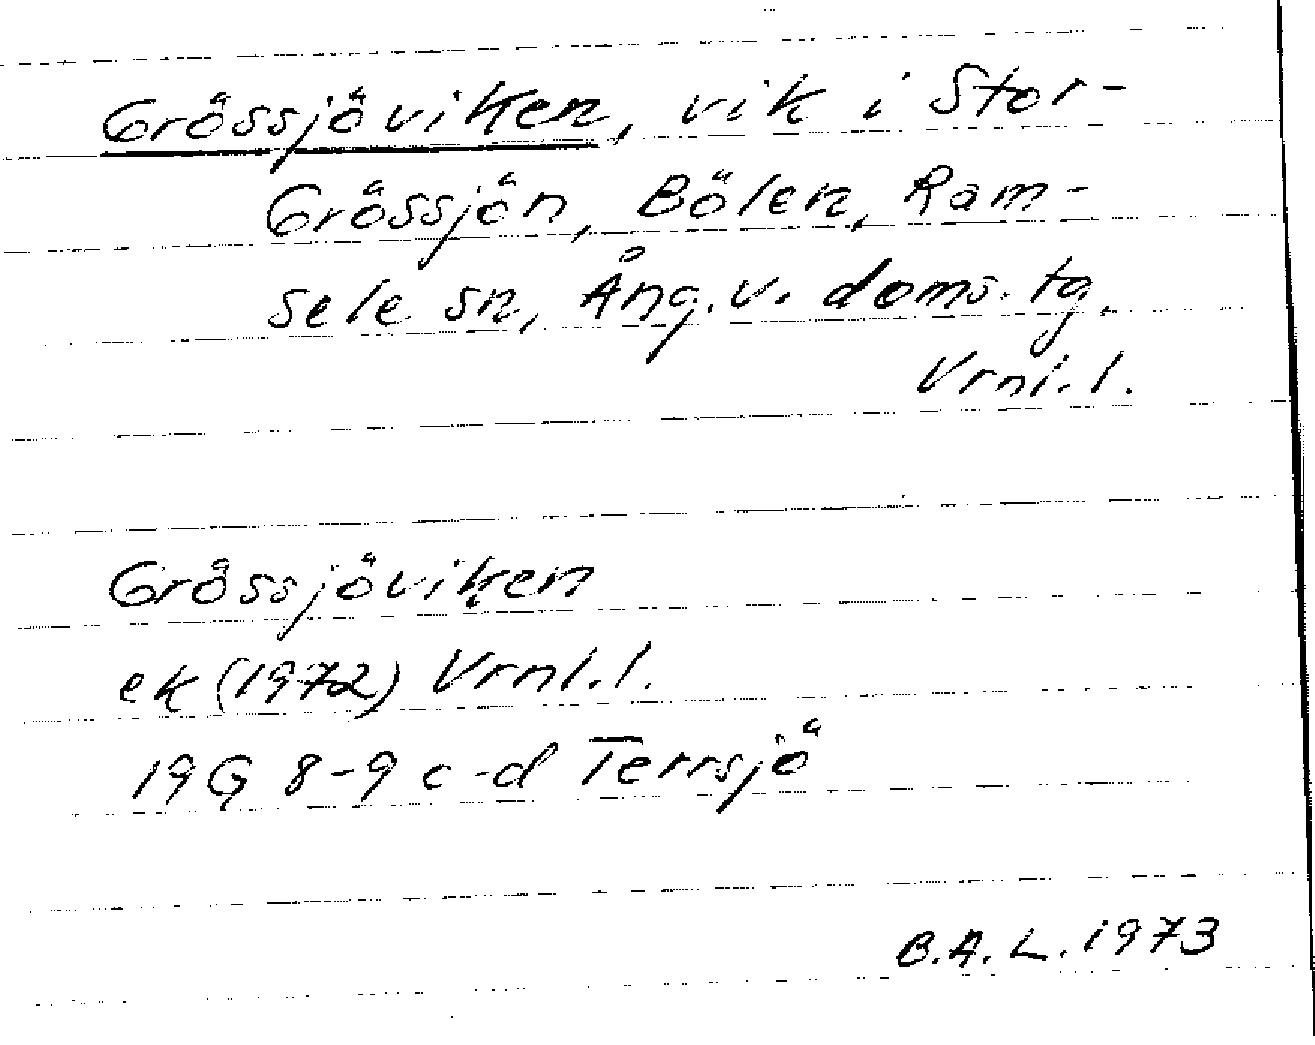 Grössjöviken, vik i Stor-
Grössjön, Bölen, Ram-
sele sn, Ång. v. doms. tg.
Vrnl. l.
Grössjöviken
ek (1972) Vrnl. l.
19G 8-9 c-d Terrsjö
B.A.L. 1973